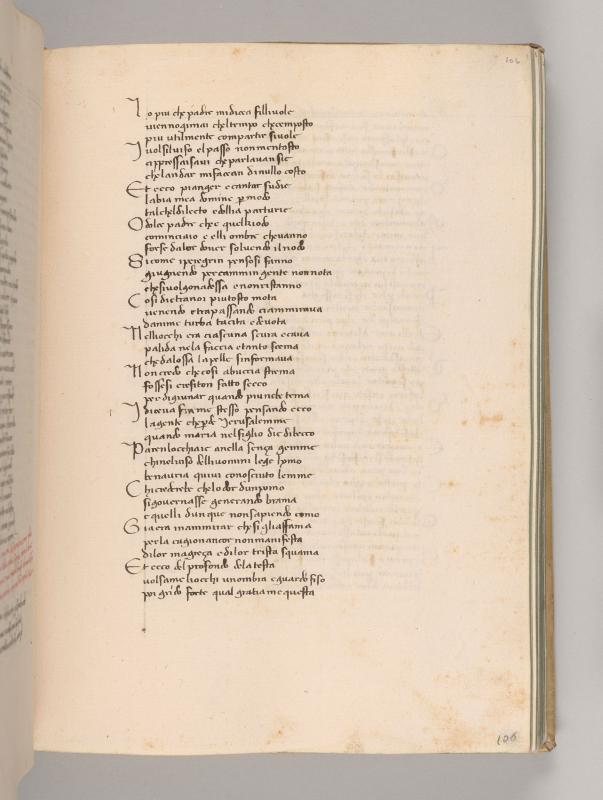 106
Lo piu che padre midicea fillivole
vienne oimai cheltempo checemposto
piu utilmente compartir sivole
Ivolsilviso el passo nonmentosto
appressaisavi che parlavan sie
chelandar mifacean dinullo costo
Et ecco pianger ecantar sudie
labia mea domine per modo
talcheldilecto edollia parturie
O dolce padre che e quelkiodo
cominciaio e elli ombre chevanno
forse dalor dover solvendo ilnodo
Si come iperegrin pensosi fanno
giugnendo percammin gente nonnota
chesivolgonadessa e nonristanno
Cosi dietranoi piutosto mota
venendo etrapassando ciammirava
danime turba tacita e devota
Nelliocchi era ciascuna scura ecava
palida nela faccia etanto scema
chedalossa lapelle sinformava
Non credo checosi abuccia strema
fossesi eresiton fatto secco
per digiunar quando piunebe tema
Idiceva frame stesso pensando ecco
lagente cheperde Ierusalemme
quando maria nelfiglio die dibecco
Parenlocchiaie anella sença gemme
chinelviso dellivomini lege homo
benavria quivi conosciuto lemme
Chicrederebe chelodor dunpomo
sigovernasse generando brama
e quelli dun que nonsapiendo como
Gia era inammirar chesi gliaffama
perla cagionancor nonmanifesta
dilor magreça edilor trista squama
Et ecco del profondo dela testa
volsame liocchi unombra eguardo fiso
poi grido forte qual gratiame questa
106